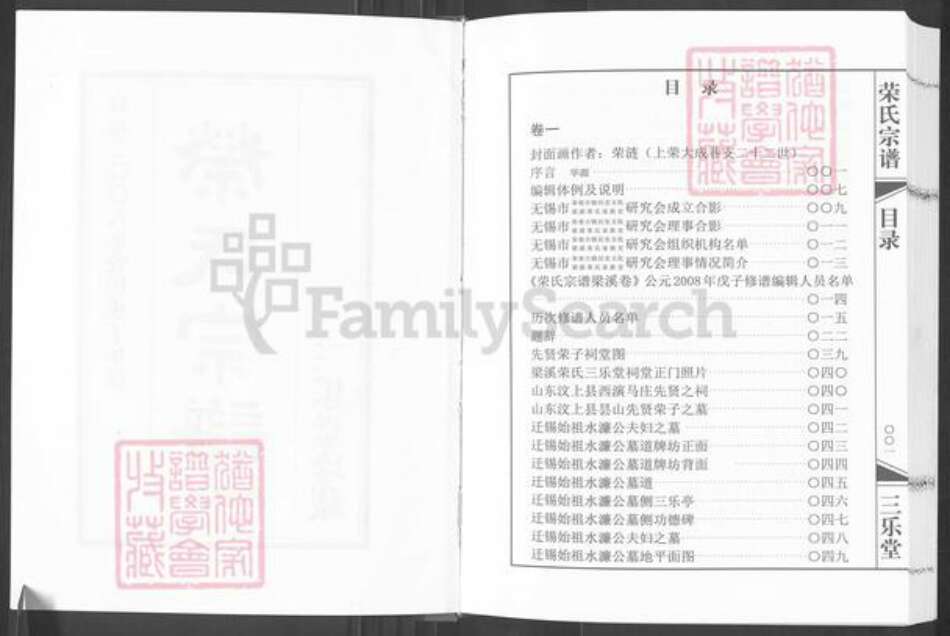 目 录
卷一
封面源作者：荣涟（上荣大成巷支二十二世）
序言 华源 〇〇一
编辑体例及说明 〇〇七
无锡市 研究会成立合影 〇〇九
无锡市 研究会理事合影 〇一一
无锡市 研究会组织机构名单 〇一二
无锡市 研究会理事情况简介 〇一三
《荣氏宗谱梁溪卷》公元2008年戊子修谱编辑人员名单
〇一四
历次修谱人员名单 〇一五
题辞 〇二二
先贤荣子祠堂图 〇三九
梁溪荣氏三乐堂祠堂正门照片 〇四〇
山东汶上县西演马庄先贤之祠 〇四〇
山东汶上县昙山先贤荣子之墓 〇四一
迁锡始祖水濂公夫妇之墓 〇四二
迁锡始祖水濂公墓道牌坊正面 〇四三
迁锡始祖水濂公墓道牌坊背面 〇四四
迁锡始祖水濂公墓道 〇四五
迁锡始祖水濂公墓侧三乐亭 〇四六
迁锡始祖水濂公墓侧功德碑 〇四七
迁锡始祖水濂公夫妇之墓 〇四八
迁锡始祖水濂公墓地平面图 〇四九
荣氏宗谱
目录
〇〇一
三乐堂
FamilySearch